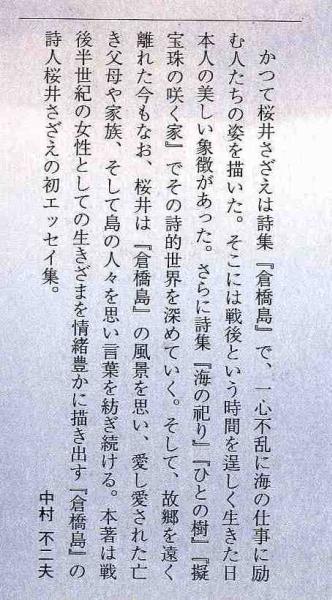 かつて桜井さざえは詩集『倉橋島』で、一心不乱に海の仕事に励
む人たちの姿を描いた。そこには戦後という時間を逞しく生きた日
本人の美しい象徴があった。さらに詩集『海の祀り』『ひとの樹』『擬
宝珠の咲く家』でその詩的世界を深めていく。そして、故郷を遠く
離れた今もなお、桜井は『倉橋島』の風景を思い、愛し愛された亡
き父母や家族、そして島の人々を思い言葉を紡ぎ続ける。本著は戦
後半世紀の女性としての生きざまを情緒豊かに描き出す『倉橋島』の
詩人桜井さざえの初エッセイ集。
中村 不二夫